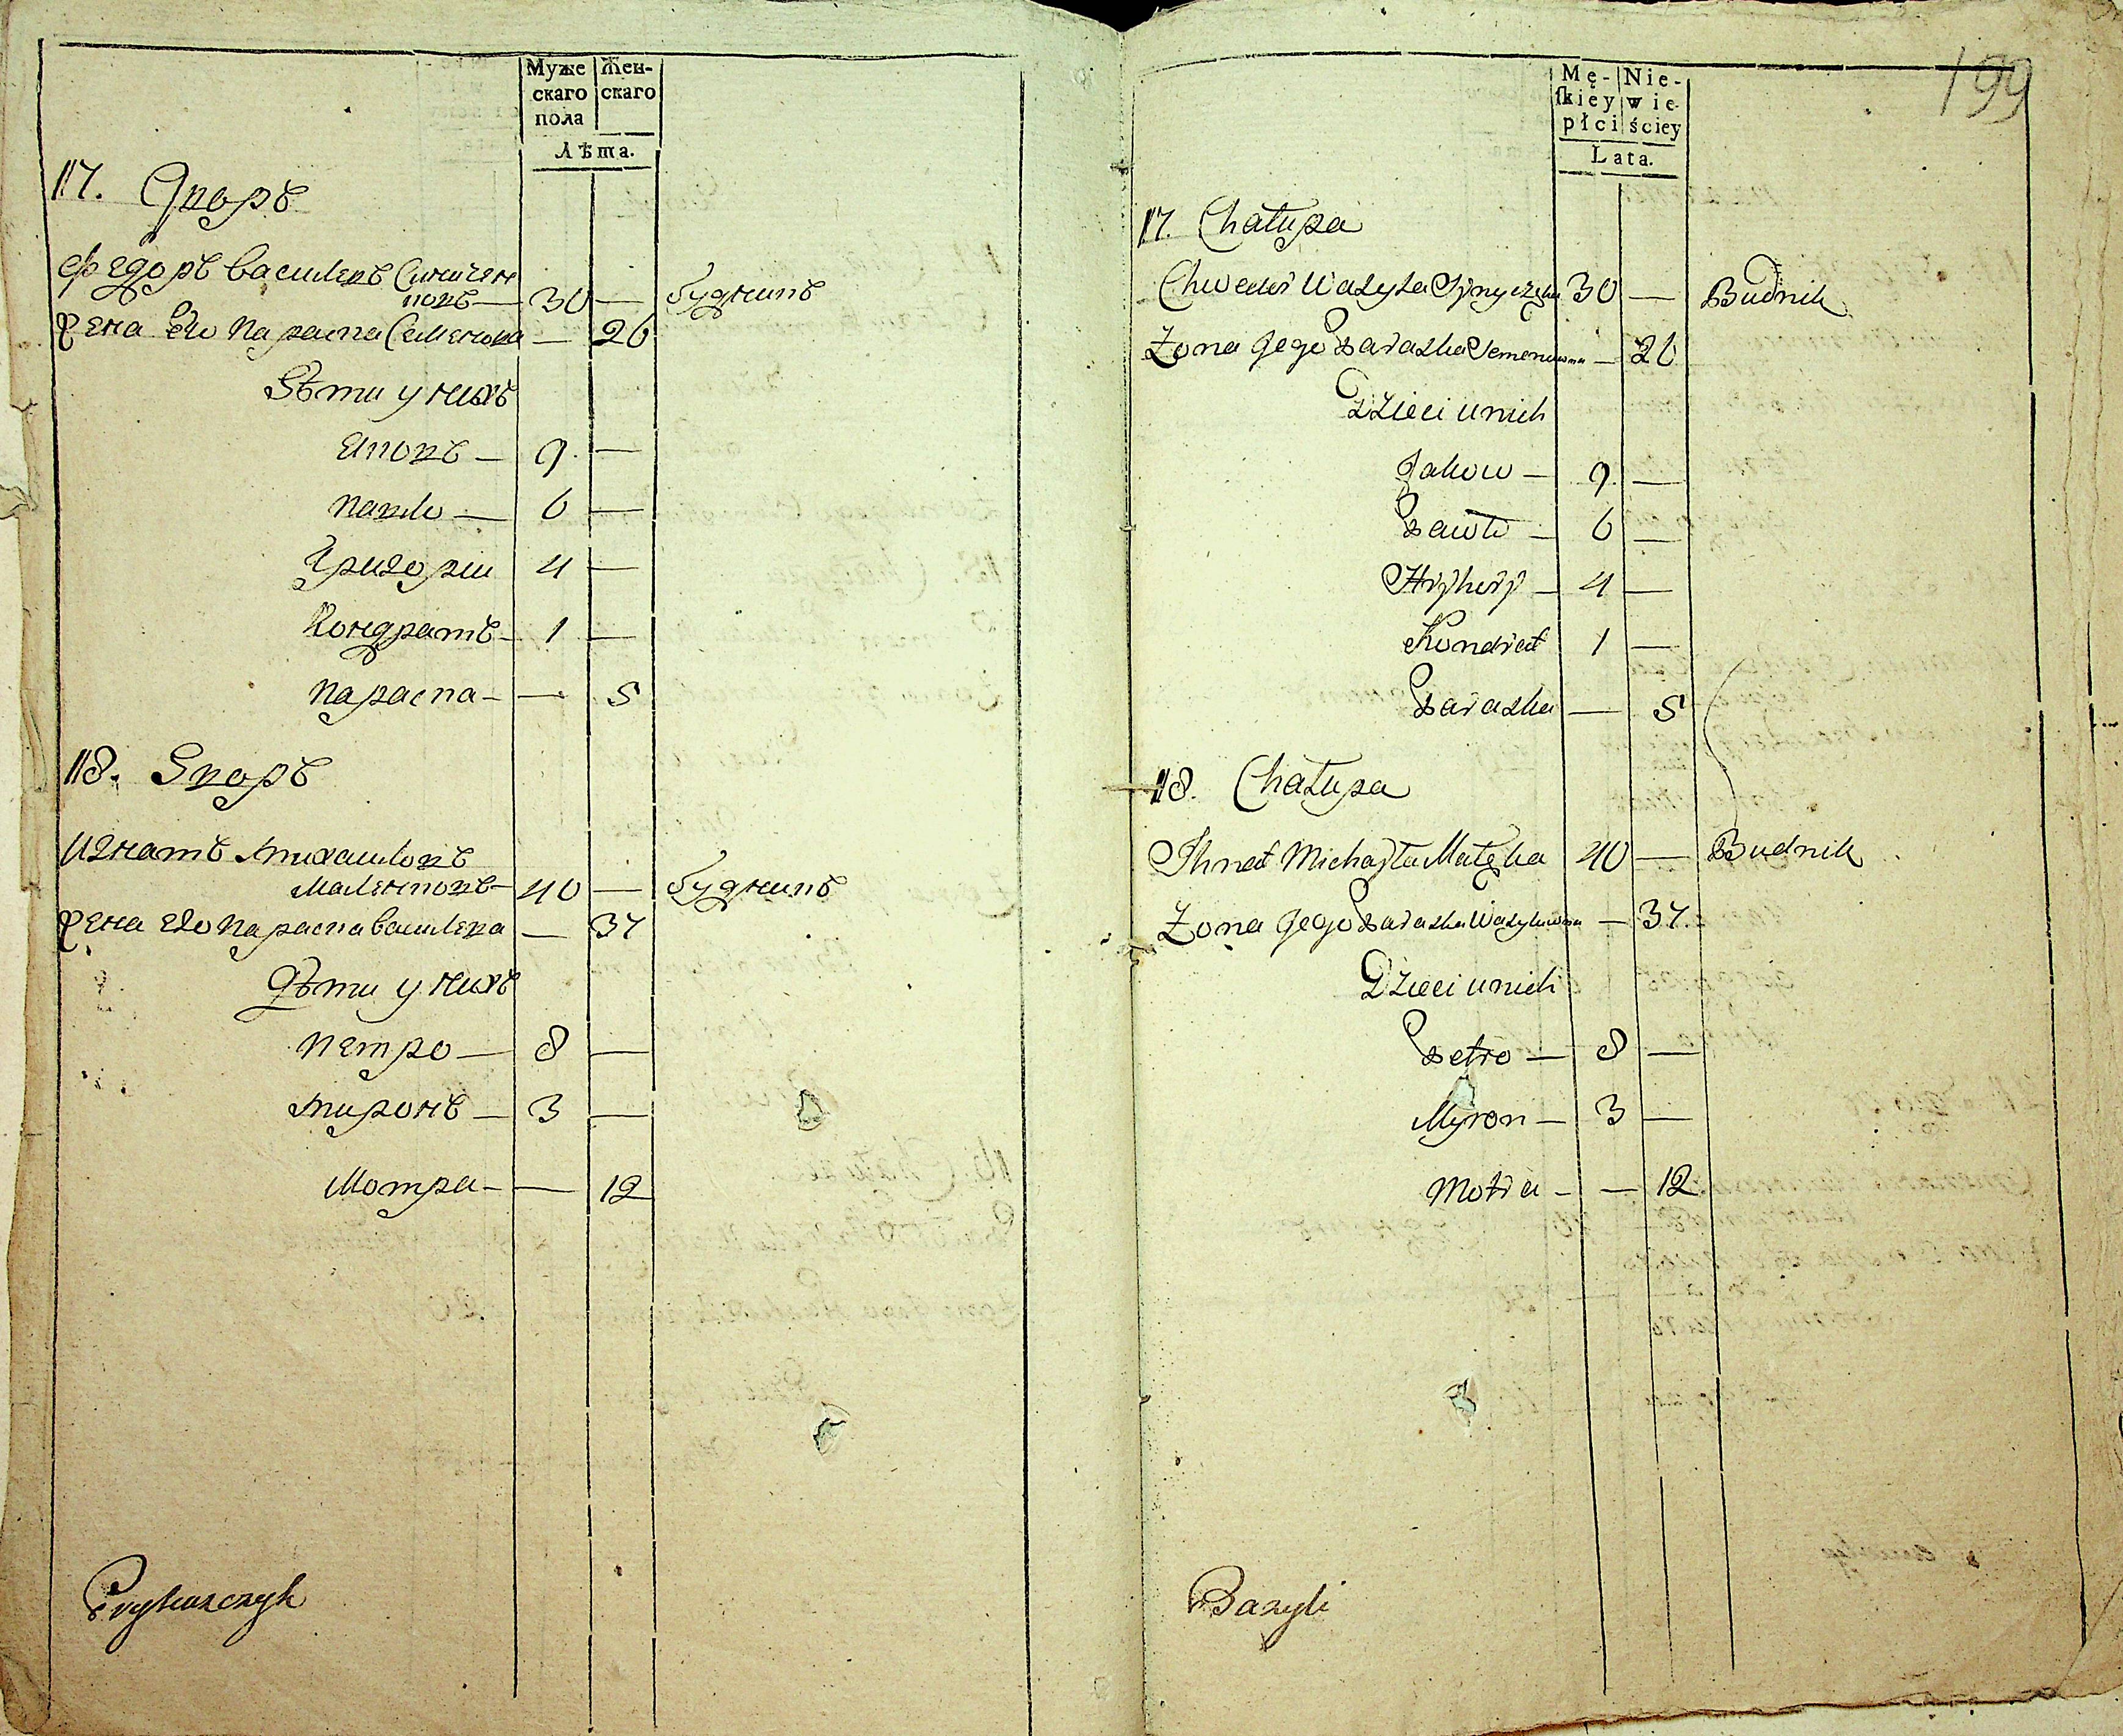 Муже
скаго
пола
Жен-
скаго
Лѣта.
17. Дворъ
Федоръ Василевъ Синичен
ковъ — 30 — будникъ
Жена Его Параска Семенова — 26
Дѣти у нихъ
Яковъ — 9. —
Павло — 6 —
Григории 4 —
Кондратъ — 1 —
Параска — — 5
18. Дворъ
Игнатъ Михаиловъ
Маленковъ — 40 — будникъ
Жена Его Параска Василева — 37
Дѣти у нихъ
Петро — 8 —
Миронъ — 3 —
Мотра — — 12
Prykazczyk
199
Mę-
ſkiey
płci
Nie-
wie-
ściey
Lata.
17. Chałupa
Chwedor Wasyla 30 — Budnik
Żona Jego Paraska Semenowna — 26
Dzieci u nich
Jakow — 9. —
Pawło — 6 —
Hryhory — 4 —
Kondrat 1 —
Paraska — 5
18. Chałupa
Ihnat Michayła 40 — Budnik
Żona Jego Paraska Wasylowna — 37.
Dzieci u nich
Petro — 8 —
Myron — 3 —
Motra — — 12
Bazyli